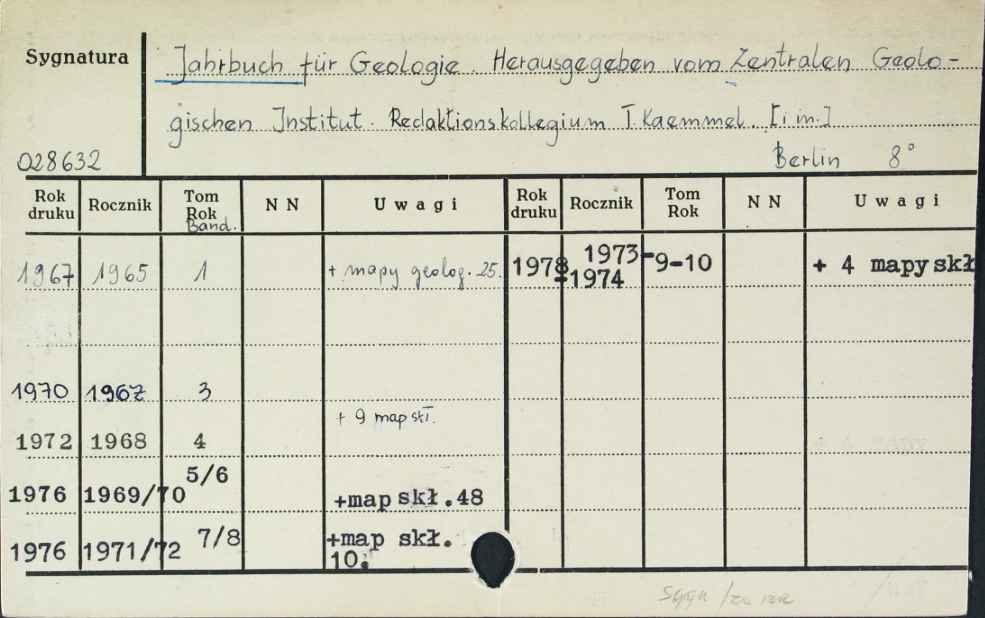 Sygnatura
Jahrbuch für Geologie. Herausgegeben vom Zentralen Geolo-
gischen Institut. Redaktionskollegium T. Kaemmel. [i in.]
028632
Berlin 8°
Rok druku Rocznik Tom Rok Band. NN Uwagi Rok druku Rocznik Tom Rok NN Uwagi
1967 1965 1 + mapy geolog. 25. 1978 1973-1974 9-10 + 4 mapy skł
1970 1967 3
+ 9 map skł.
1972 1968 4
1976 1969/70 5/6 +map skł.48
1976 1971/72 7/8 +map skł. 10.
sygn